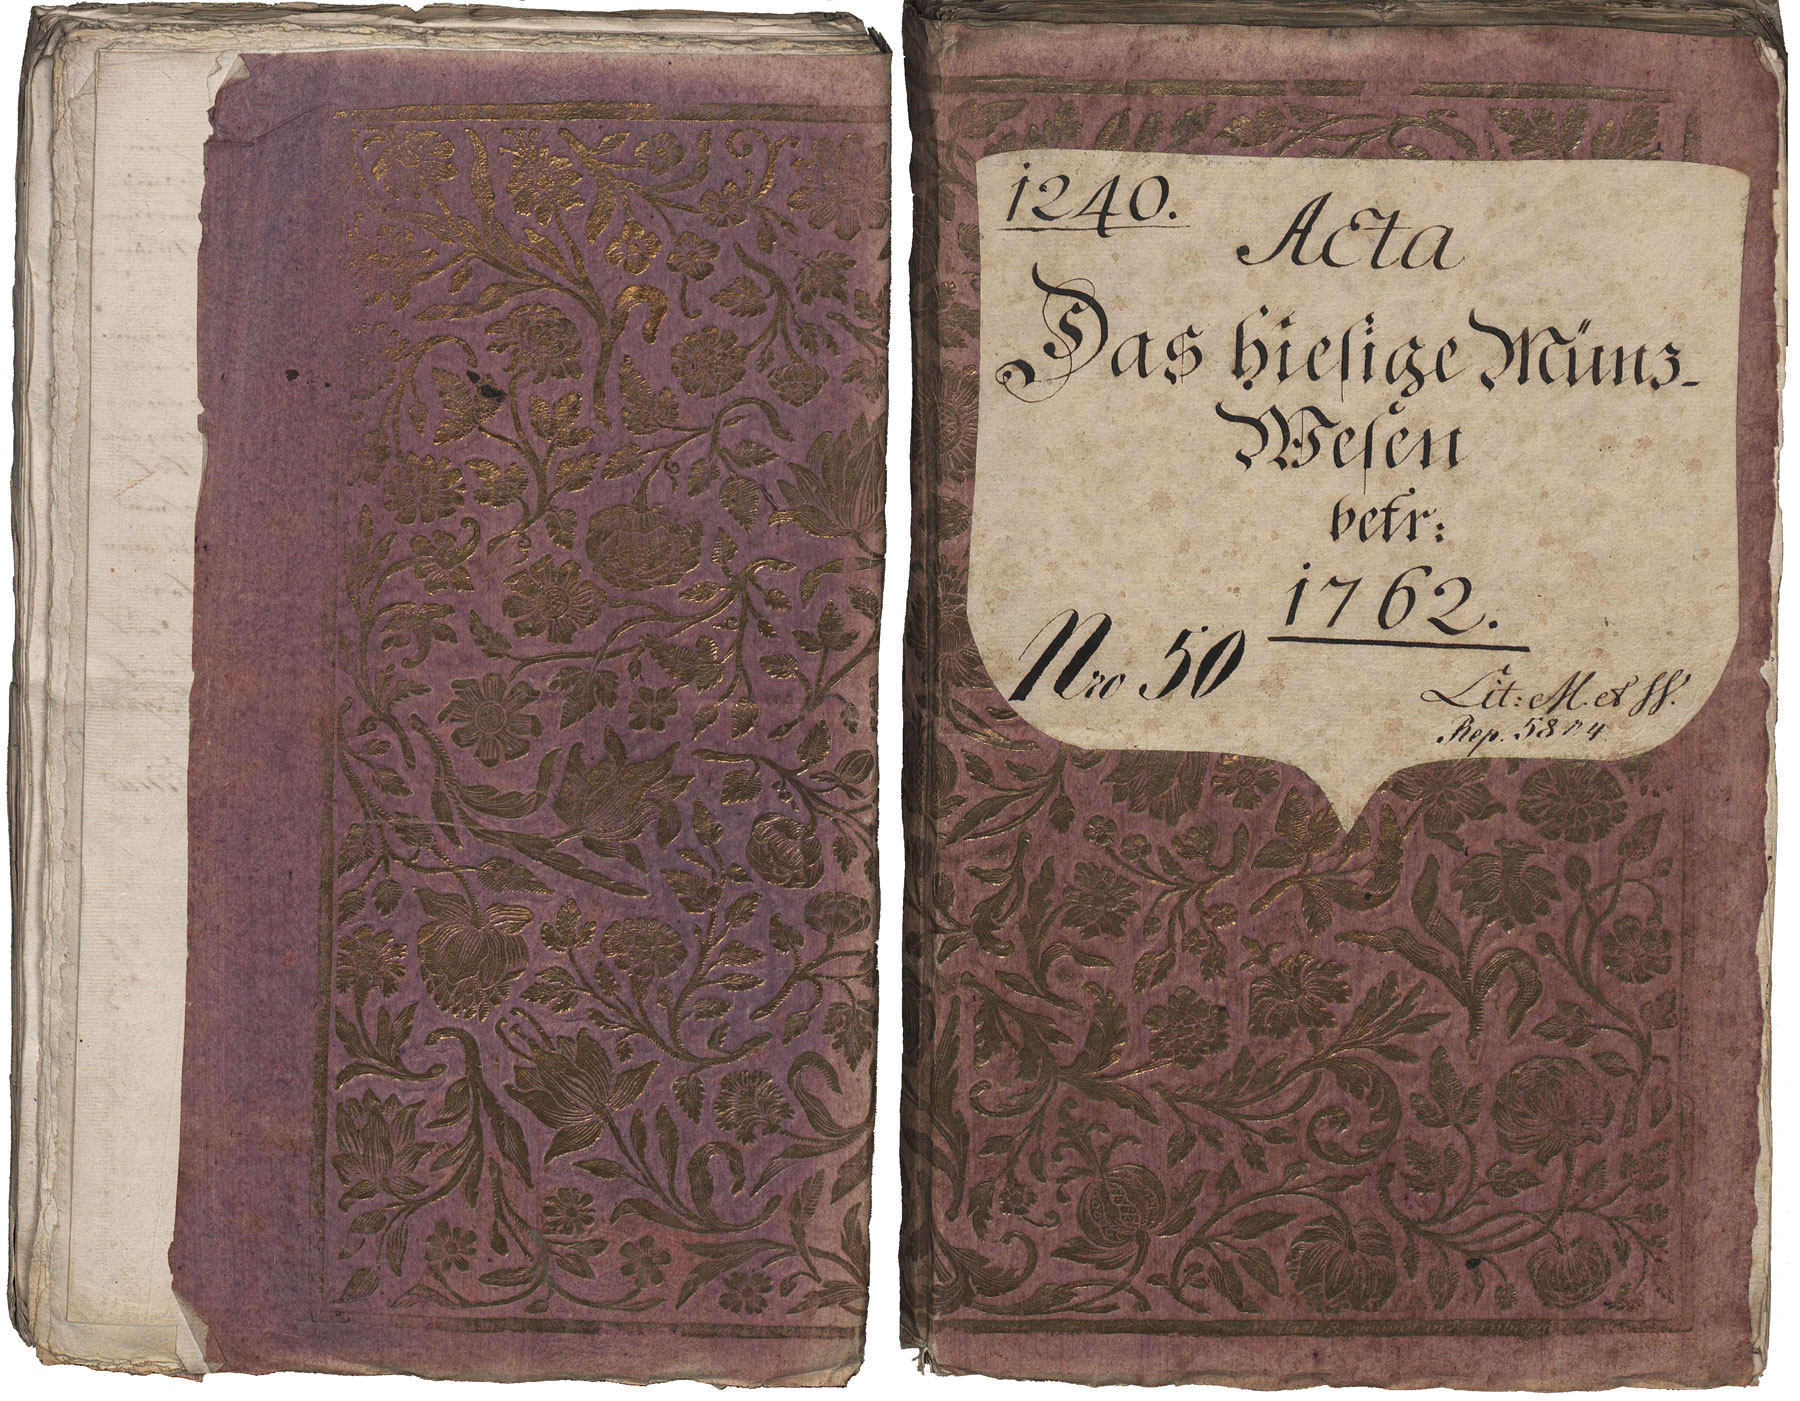 1240.
Acta
Das hiesige Münz-
Wesen
betr:
1762.
Nro 50
Lit: M. et
Rep. 58 n 4